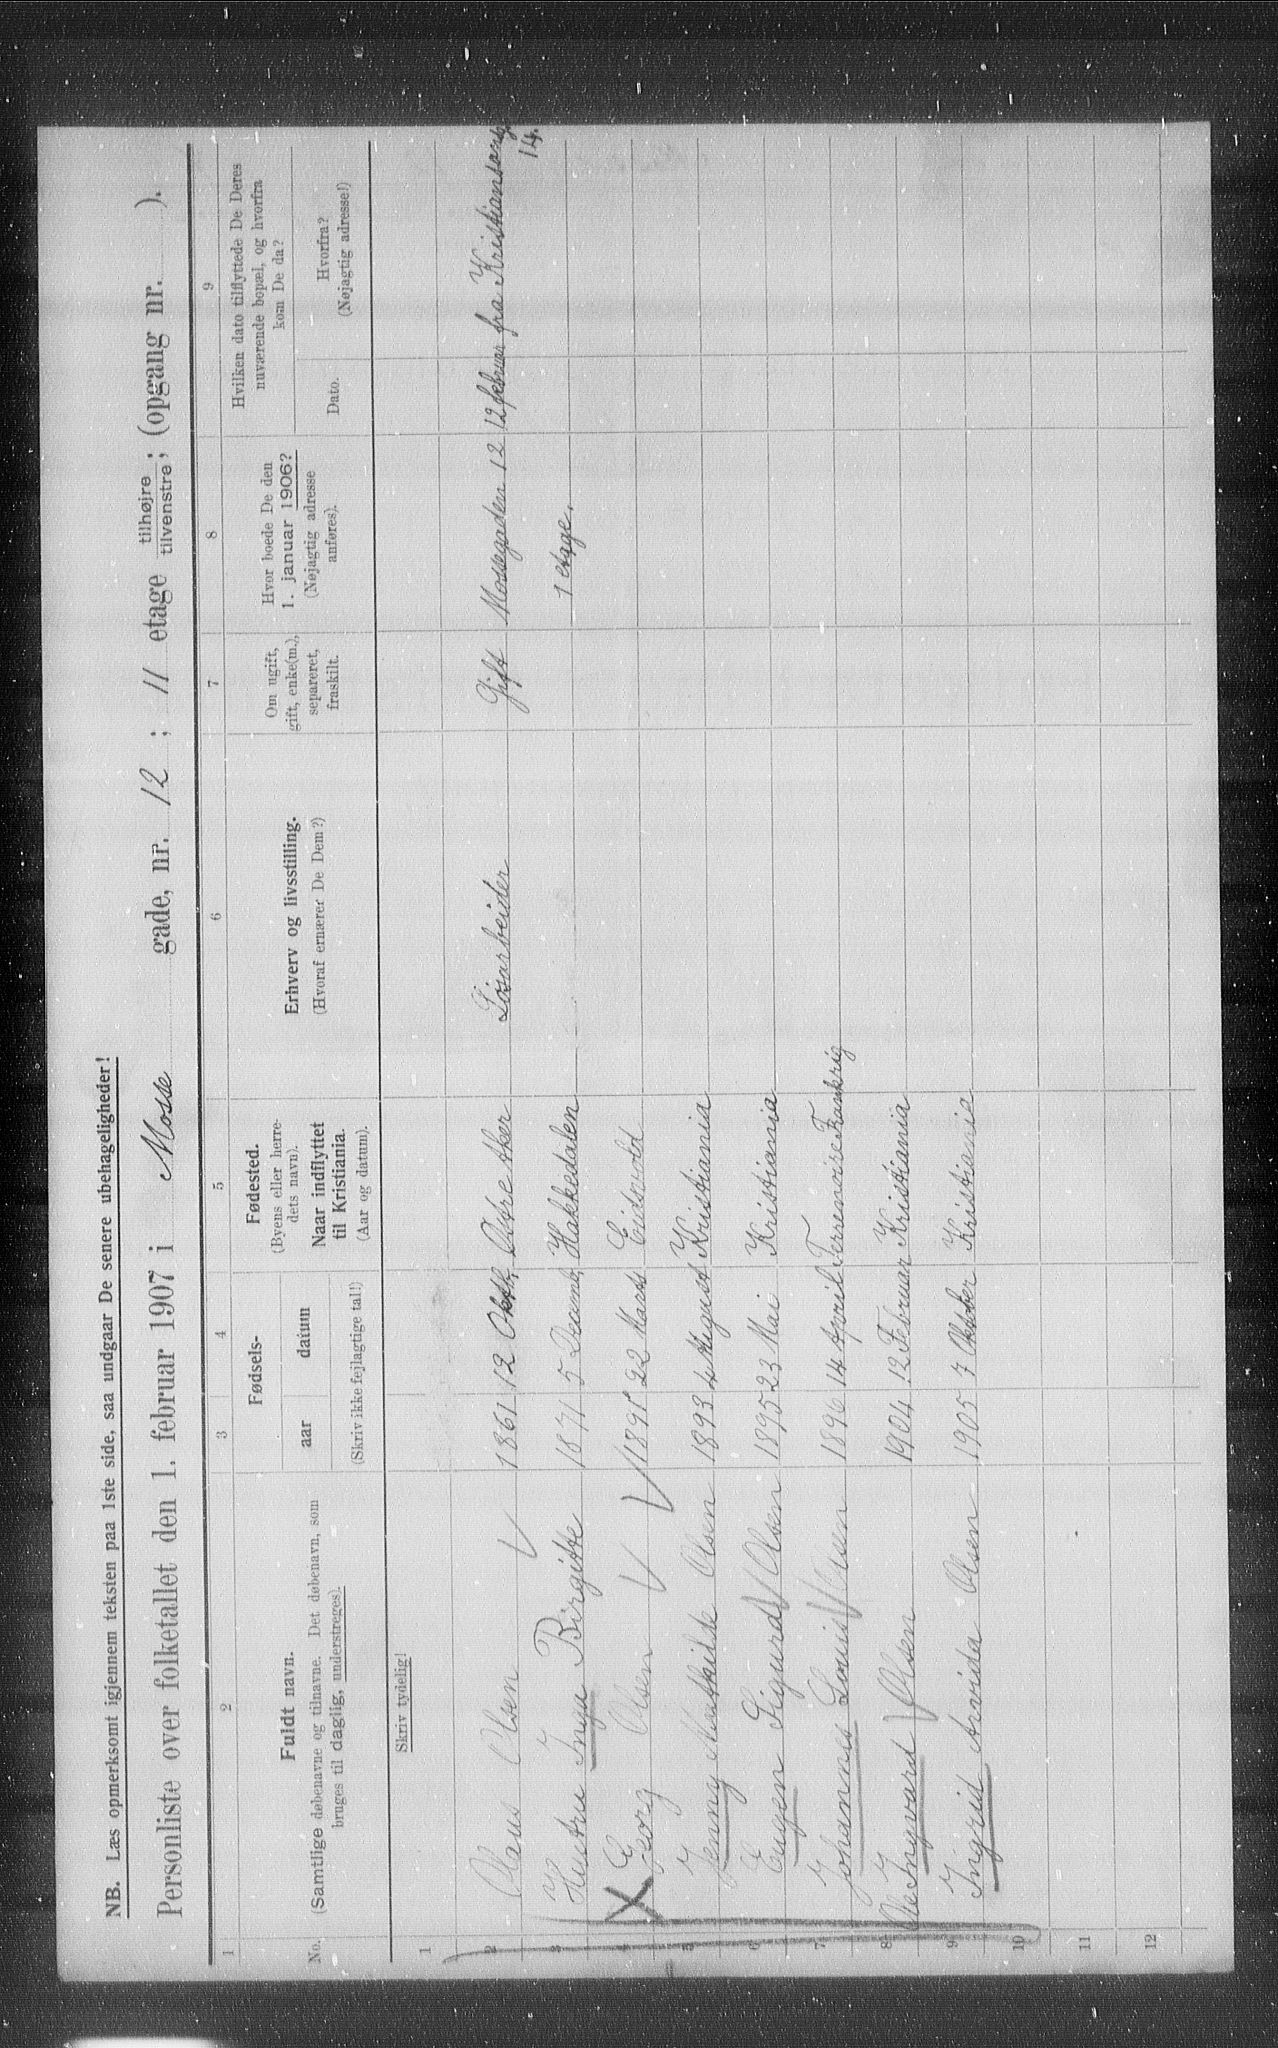 NB. Læs opmerksomt igjennem teksten paa 1ste side, saa undgaar De senere ubehageligheder!
Personliste over folketallet den 1. februar 1907 i Mosse gade, nr. 12 ; II etage tilhøjre / tilvenstre ; (opgang nr. ).
1 2 3 4 5 6 7 8 9
No.
Fuldt navn.
(Samtlige døbenavne og tilnavne. Det døbenavn, som
bruges til daglig, understreges).
Fødsels-
aar datum
(Skriv ikke fejlagtige tal!)
Fødested.
(Byens eller herre-
dets navn).
Naar indflyttet
til Kristiania.
(Aar og datum).
Erhverv og livsstilling.
(Hvoraf ernærer De Dem?)
Om ugift,
gift, enke(m.),
separeret,
fraskilt.
Hvor boede De den
1. januar 1906?
(Nøjagtig adresse
anføres).
Hvilken dato tilflyttede De Deres
nuværende bopæl, og hvorfra
kom De da?
Dato.
Hvorfra?
(Nøjagtig adresse!)
Skriv tydelig!
1
2 Olaus Olsen 1861 12 Oktb. Østre Aker Løsarbeider Gift Mossegaden 12 12 februar fra Kristiansandg 14.
3 Hustru Inga Birgitte 1871 5 Decemb. Hakkedalen 1 etage.
4 Georg Olsen 1891 22 Marts Eidsvold
5 Jenny Mathilde Olsen 1893 4 August Kristiania
6 Eugen Sigurd Olsen 1895 23 Mai Kristiania
7 Johannes Louis Olsen 1896 14 April Frankrig
8 Ole Ingvard Olsen 1904 12 Februar Kristiania
9 Ingrid Arvida Olsen 1905 7 Oktober Kristiania
10
11
12